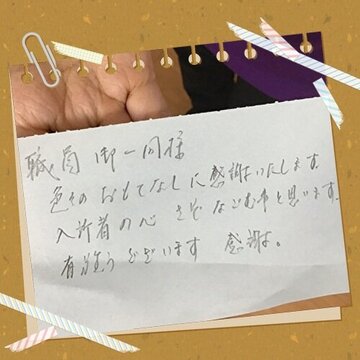 職員御一同様
色々のおもてなしに感謝いたします
入所者の心 さぞなごむ事と思います.
有難うございます 感謝。